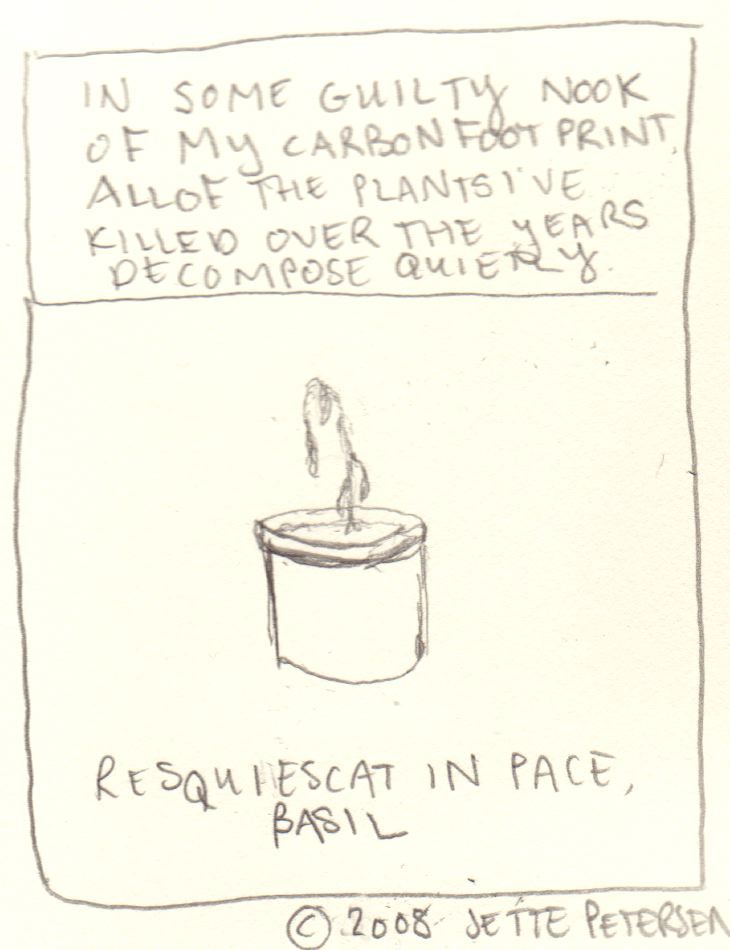 IN SOME GUILTY NOOK
OF MY CARBON FOOT PRINT,
ALL OF THE PLANTS I'VE
KILLED OVER THE YEARS
DECOMPOSE QUIETLY.
RESQUIESCAT IN PACE,
BASIL
© 2008 JETTE PETERSEN